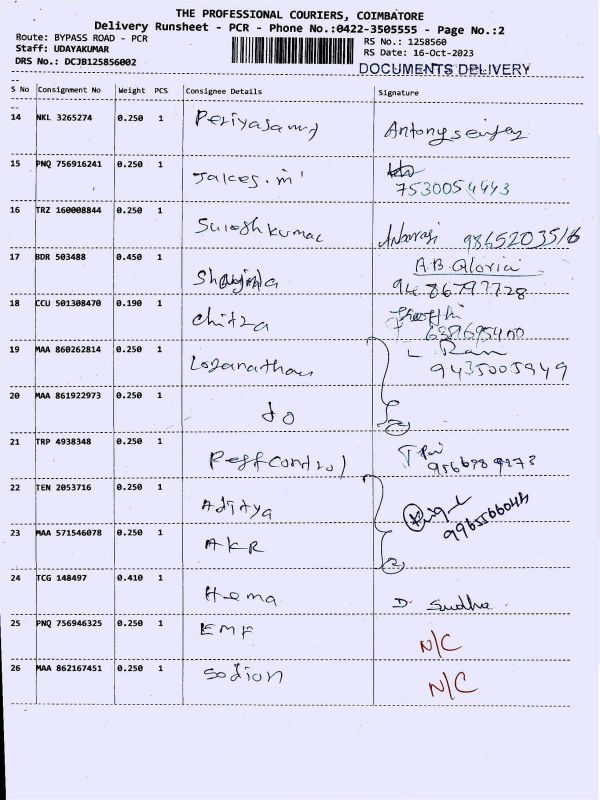 THE PROFESSIONAL COURIERS, COIMBATORE
Delivery Runsheet - PCR - Phone No.:0422-3505555 - Page No.:2
Route: BYPASS ROAD - PCR
RS No.: 1258560
Staff: UDAYAKUMAR
RS Date: 16-Oct-2023
DRS No.: DCJB125856002
DOCUMENTS DELIVERY
S No Consignment No Weight PCS Consignee Details Signature
14 NKL 3265274 0.250 1 Periyasamy
15 PNQ 756916241 0.250 1
7530054443
16 TRZ 160008844 0.250 1 Sureshkumar 9865203516
17 BDR 503488 0.450 1 A.B. Gloria
9486797728
18 CCU 501308470 0.190 1 Chitra
19 MAA 860262814 0.250 1 Loganathan Ram
9435005949
20 MAA 861922973 0.250 1 do
2
21 TRP 4938348 0.250 1 Pestcontrol
22 TEN 2053716 0.250 1 Aditya
23 MAA 571546078 0.250 1 AKR
2
24 TCG 148497 0.410 1 Hema D. Sudha.
25 PNQ 756946325 0.250 1 EMF N/C
26 MAA 862167451 0.250 1 Sodion N/C